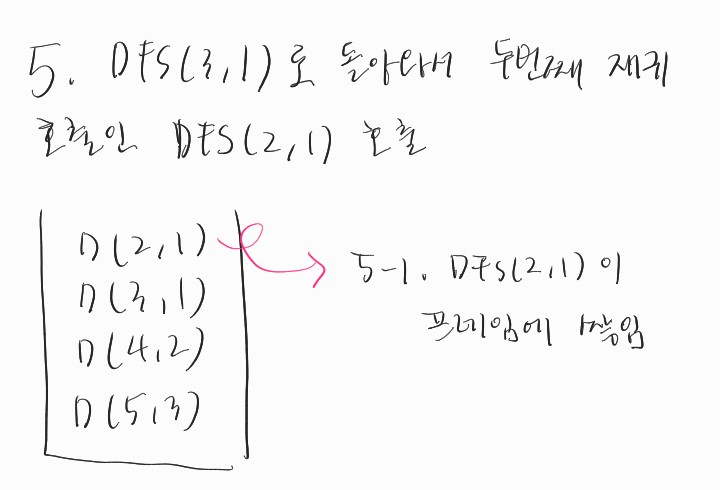 5. DFS(3,1)로 돌아와서 두번째 재귀
호출인 DFS(2,1) 호출
D(2,1)
D(3,1)
D(4,2)
D(5,3)
5-1. DFS(2,1)이
프레임에 쌓임